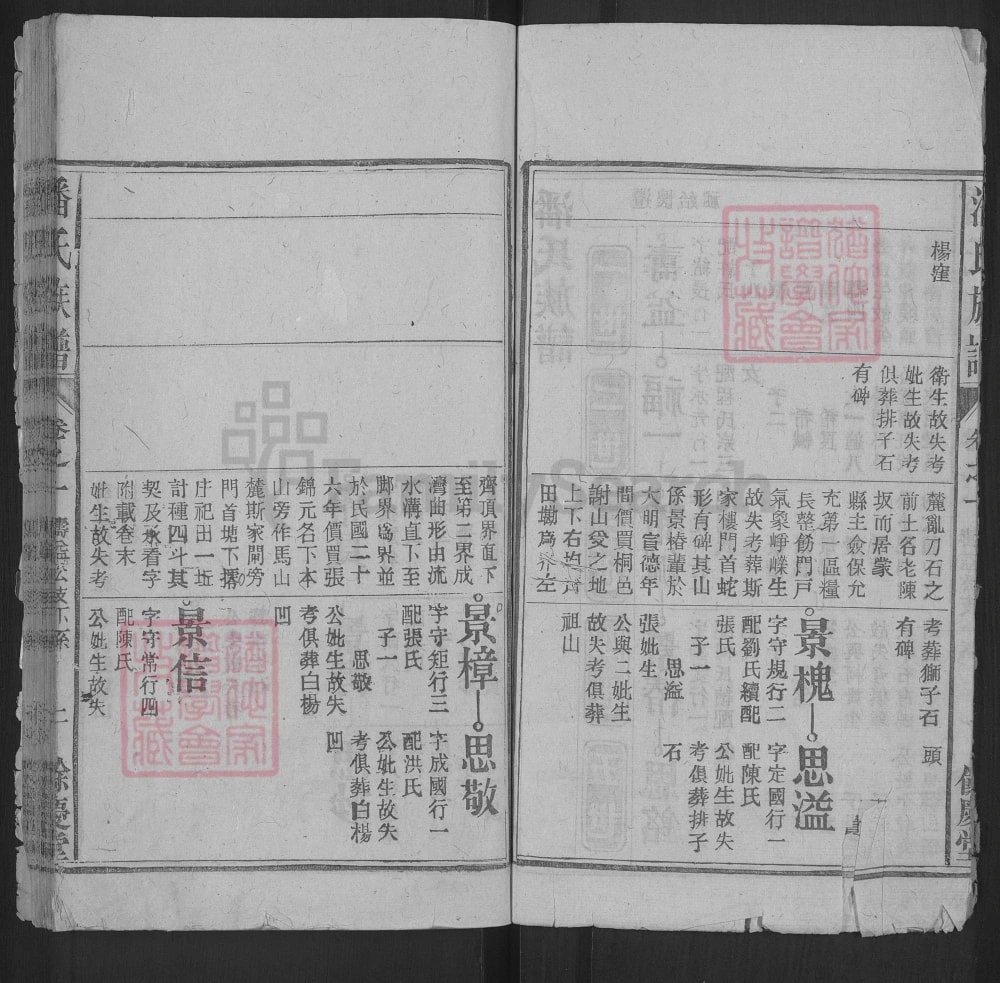 楊窪
衛生故失考
妣生故失考
俱葬排子石
有碑
麓亂刀石之
前土名老陳
坂而居蒙
縣主僉保允
充第一區糧
長整飭門戶
氣象崢嶸生
故失考葬斯
家樓門首蛇
形有碑其山
係景椿輩於
大明宣德年
間價買桐邑
謝山受之地
上下右均齊
田墈為界左
考葬獅子石
有碑
頭
景槐
字守規行二
配劉氏續配
張氏
子一
思溢
張妣生
公與二妣生
故失考俱葬
祖山
思溢
字定國行一
配陳氏
公妣生故失
考俱葬排子
石
餘慶堂
潘氏族譜
卷之一
上
餘慶堂
齊頂界直下
至第二界成
灣曲形由流
水溝直下至
脚界為界並
於民國二十
六年價買張
錦元名下本
山旁作馬山
麓斯家開旁
門首塘下壩
庄祀田一坵
計種四斗其
契及永看字
附載卷末
妣生故失考
景樟
字守矩行三
配張氏
子一
思敬
公妣生故失
考俱葬白楊
凹
思敬
字成國行一
配洪氏
公妣生故失
考俱葬白楊
凹
景信
字守常行四
配陳氏
公妣生故失